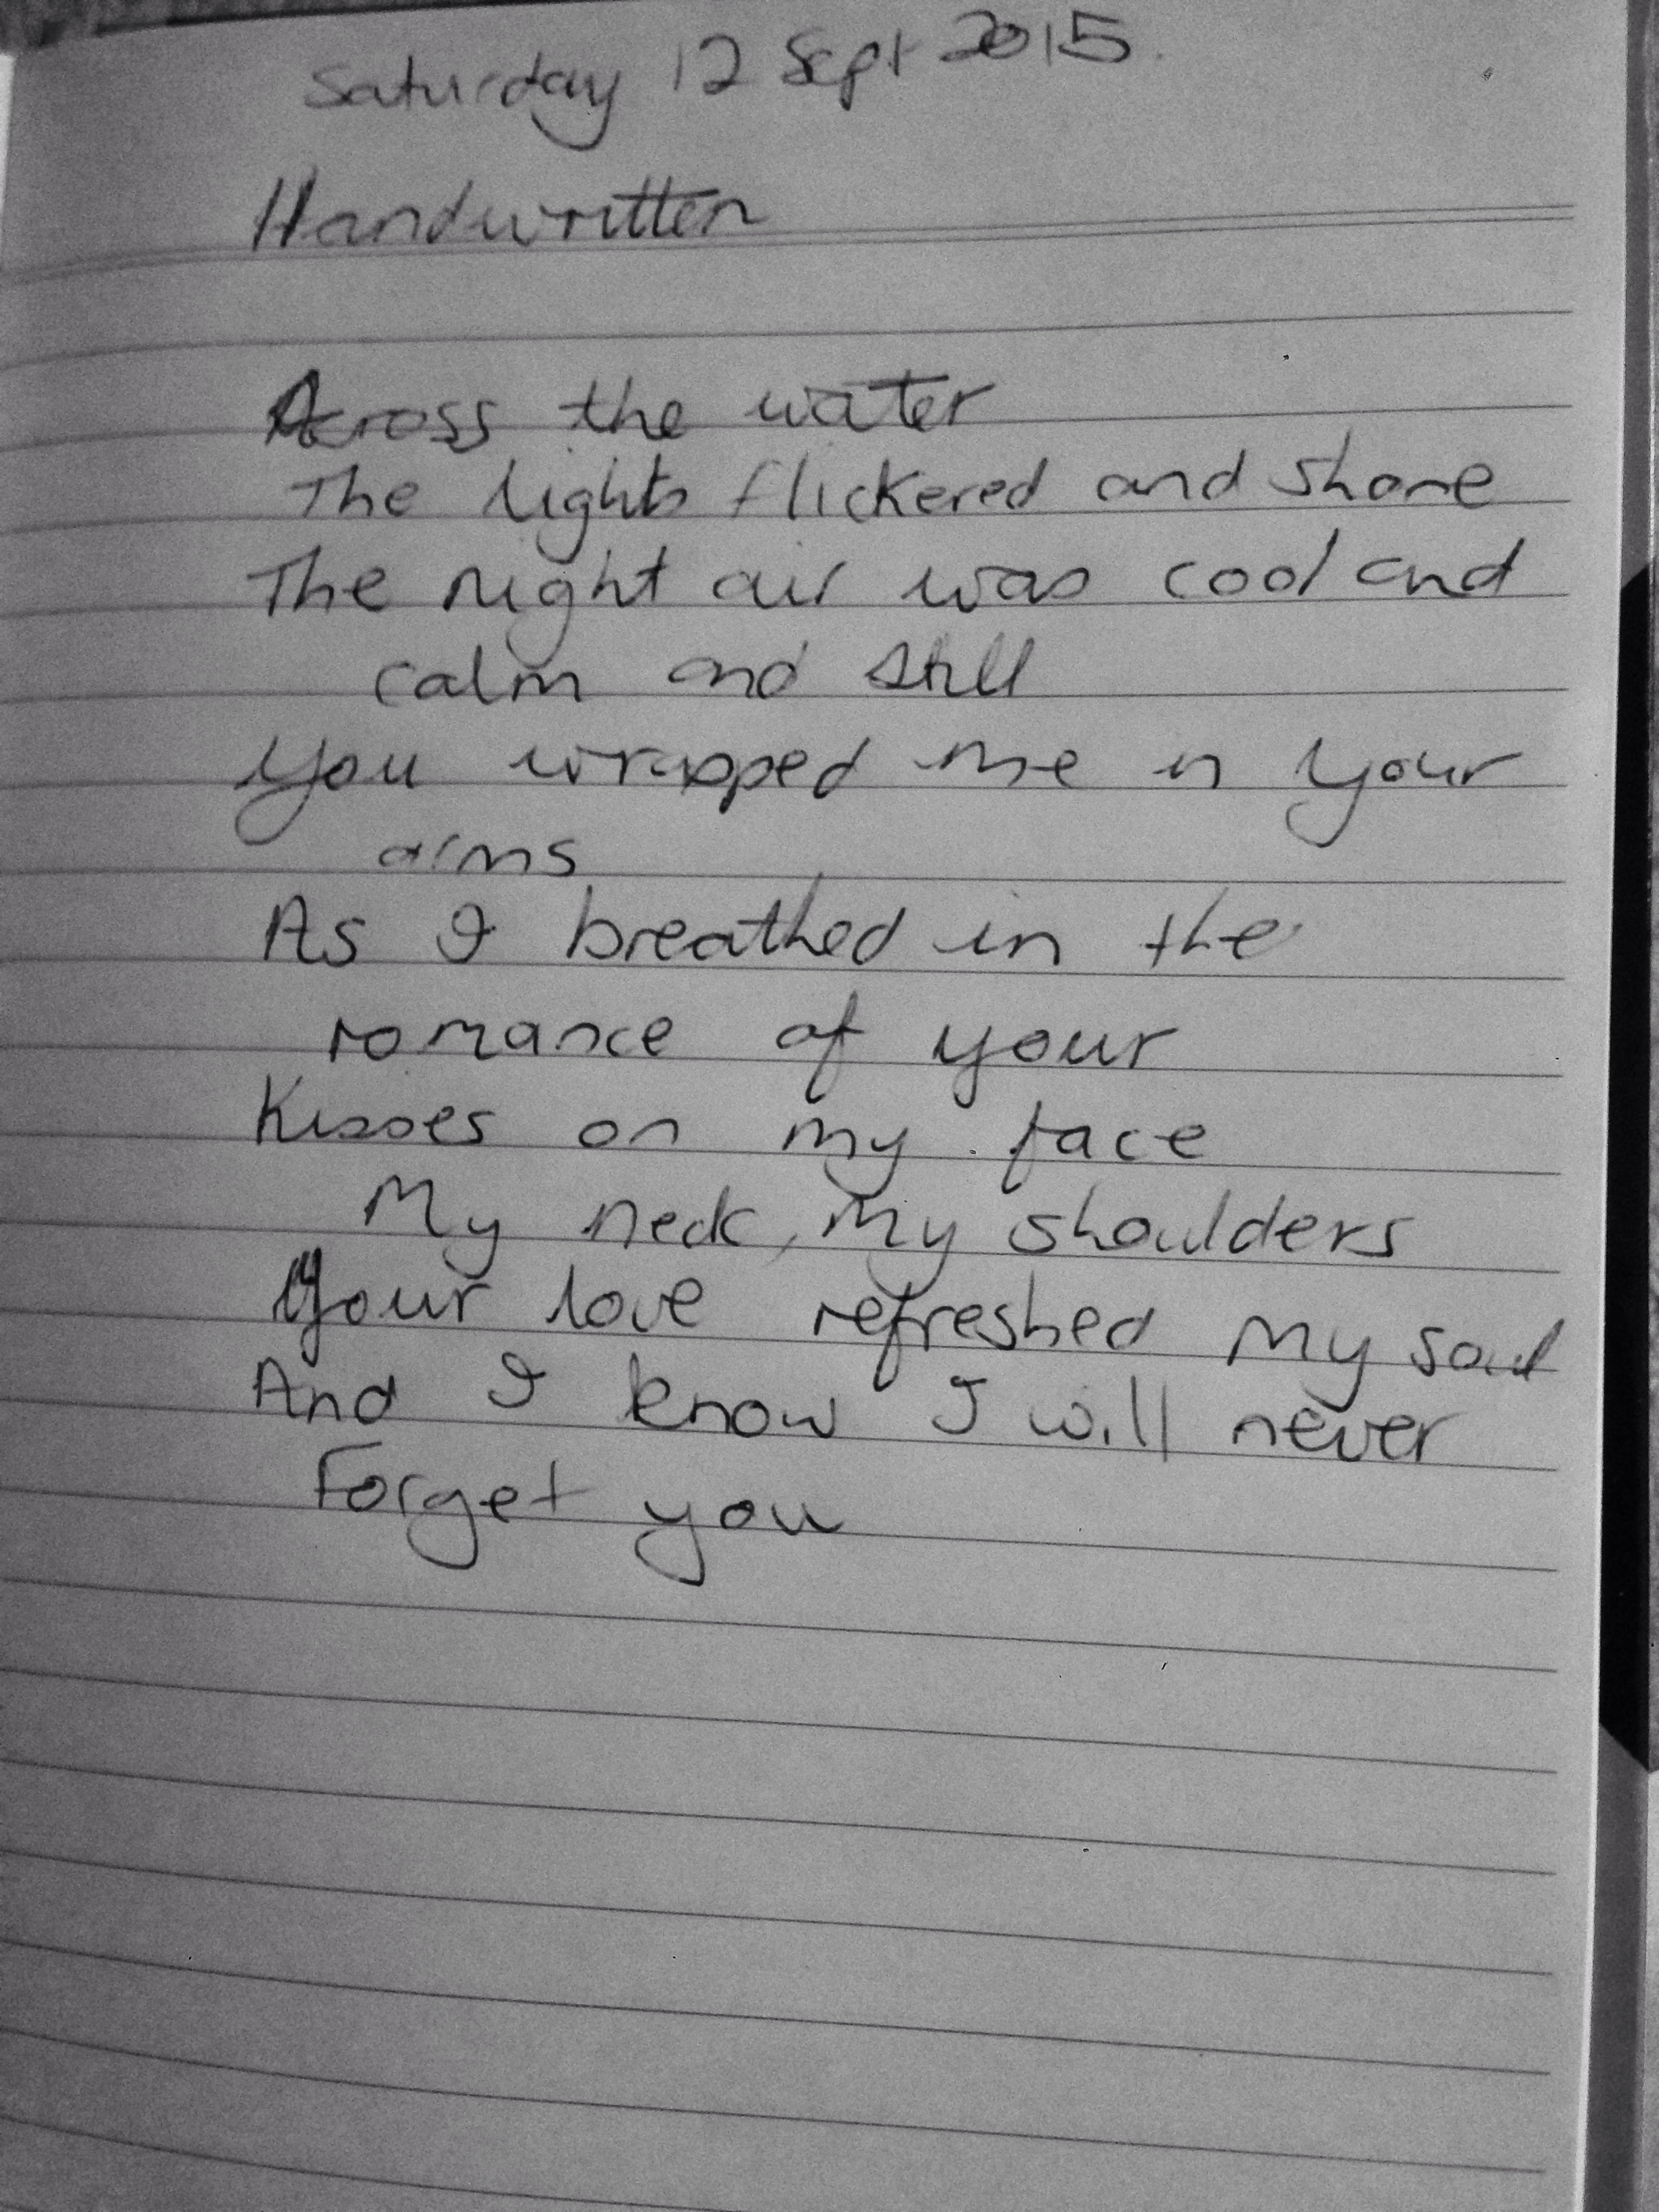 Saturday 12 Sept 2015
Handwritten
Across the water
The lights flickered and shone
The night air was cool and
calm and still
You wrapped me in your
arms
As I breathed in the
romance of your
Kisses on my face
My neck, my shoulders
Your love refreshed my soul
And I know I will never
Forget you